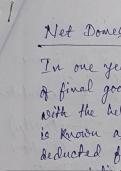 Net Dome
In one ye
of final goo
with the he
is known a
deducted f